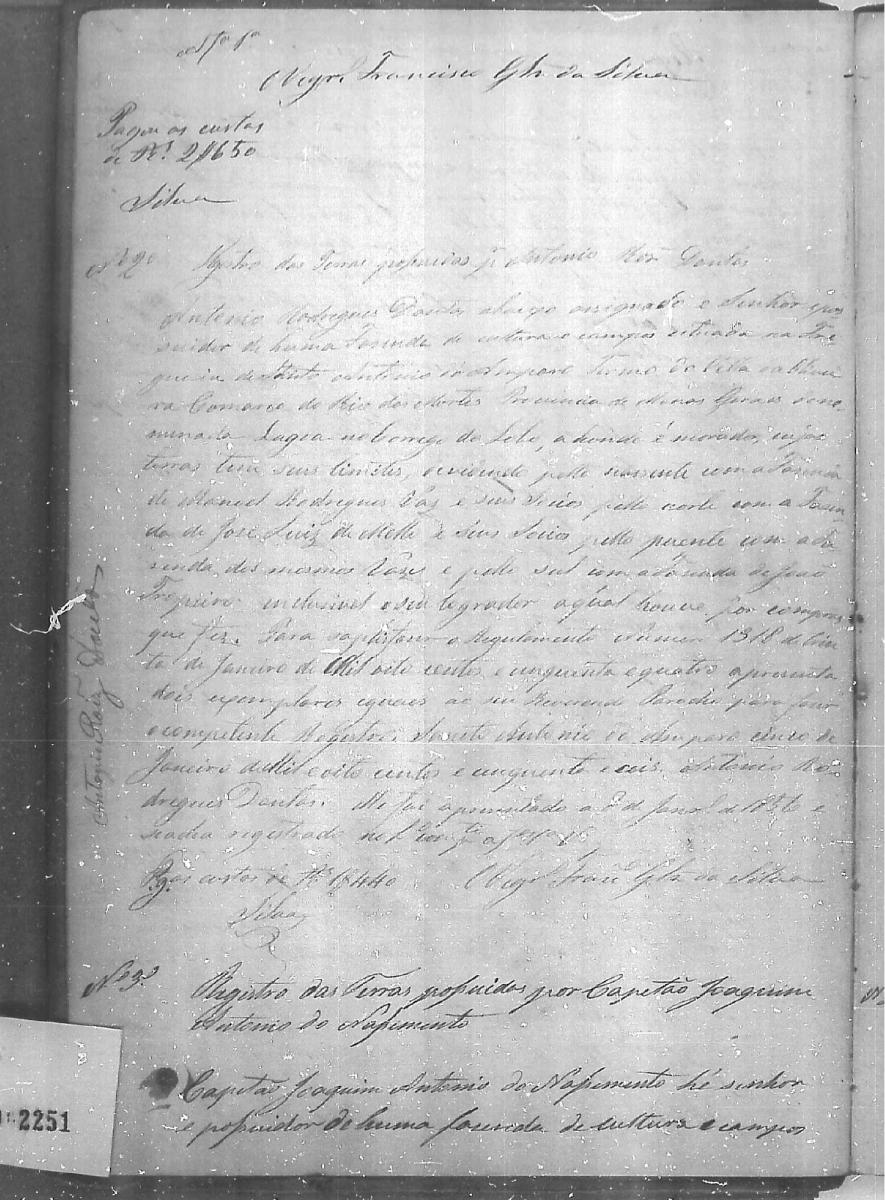 O Vigr.º Francisco Glz da Silva
Pagou as custas
de R.s 2$650
Silva
N.º 2.º Rgstro das Terras possuidas p.r Antonio Roz Dantas
Antonio Rodrigues Dantas abaixo assignado e Senhor e pos
suidor de huma Fasenda de cultura e campos cituada na Fre
guesia de Santo Antonio do Amparo Termo da Villa da Olivei
ra Comarca do Rio das Mortes Provincia de Minas Geraes deno
minada Lagoa no Corrego do Lobo, adonde é morador, cujas
terras tem seus limites, devidindo pello nascente com a Fasenda
de Manoel Rodrigues Vaz e seus Socios pello norte com a Fasen
da de José Luiz de Mello e seus Socios pello puente com a Fa
senda dos mesmos Vazes e pello sul com a Fasenda de João
Tropeiro inclusivel o seu logrador a qual houve por compra
que fez. Para satisfaser o Regulamento Numero 1318 de trin
ta de Janeiro de Mil oito centos e cinquenta e quatro apresenta
dois exemplares iguaes ao seu Reverendo Parocho para faser
o competente Registro. Santo Antonio do Amparo cinco de
Janeiro de Mil e oito centos e cinquenta e ceis. Antonio Ro
dregues Dantas. Me foi apresentado a 8 de Janr.º de 1856 e
registrado no L.º
Pg. as custas de R.s 1$440 O Vigr.º Fran.co Glz da Silva
Silva
Antonio Roiz Dantas
N.º 3.º Registro das Terras possuidas por Capitão Joaquim
Antonio do Nassimento
Capitão Joaquim Antonio do Nassimento hé senhor
e possuidor de huma fasenda de cultura e campos
2251